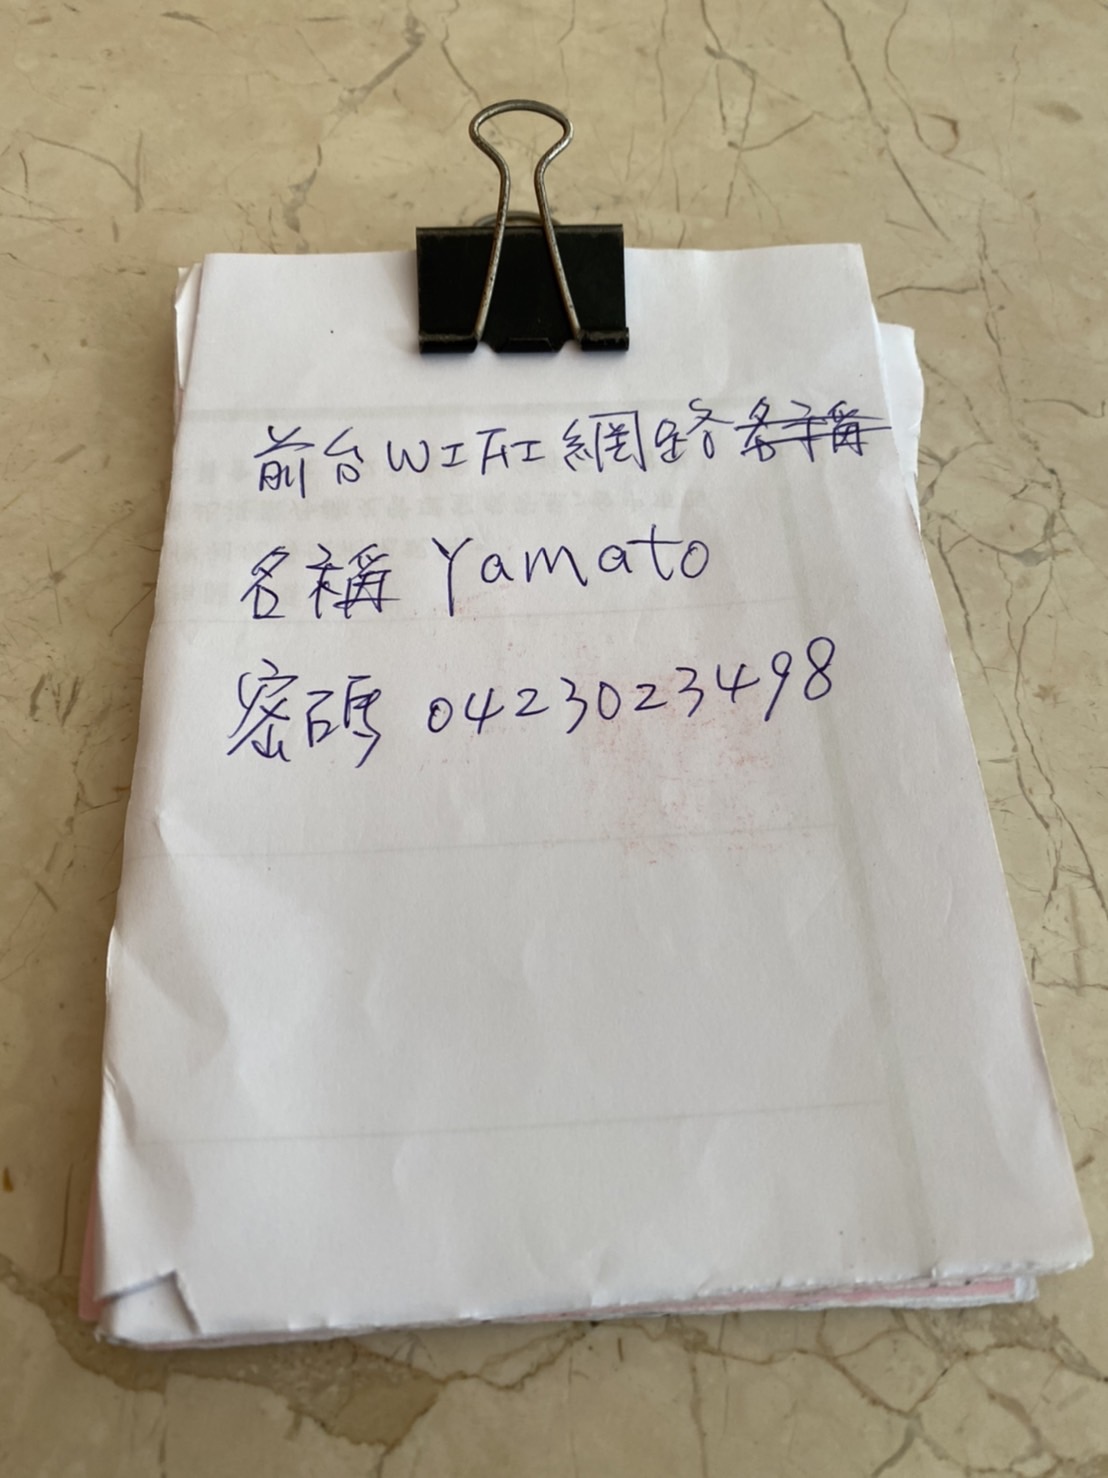 前台WIFI網路名稱
名稱 Yamato
密碼 0423023498